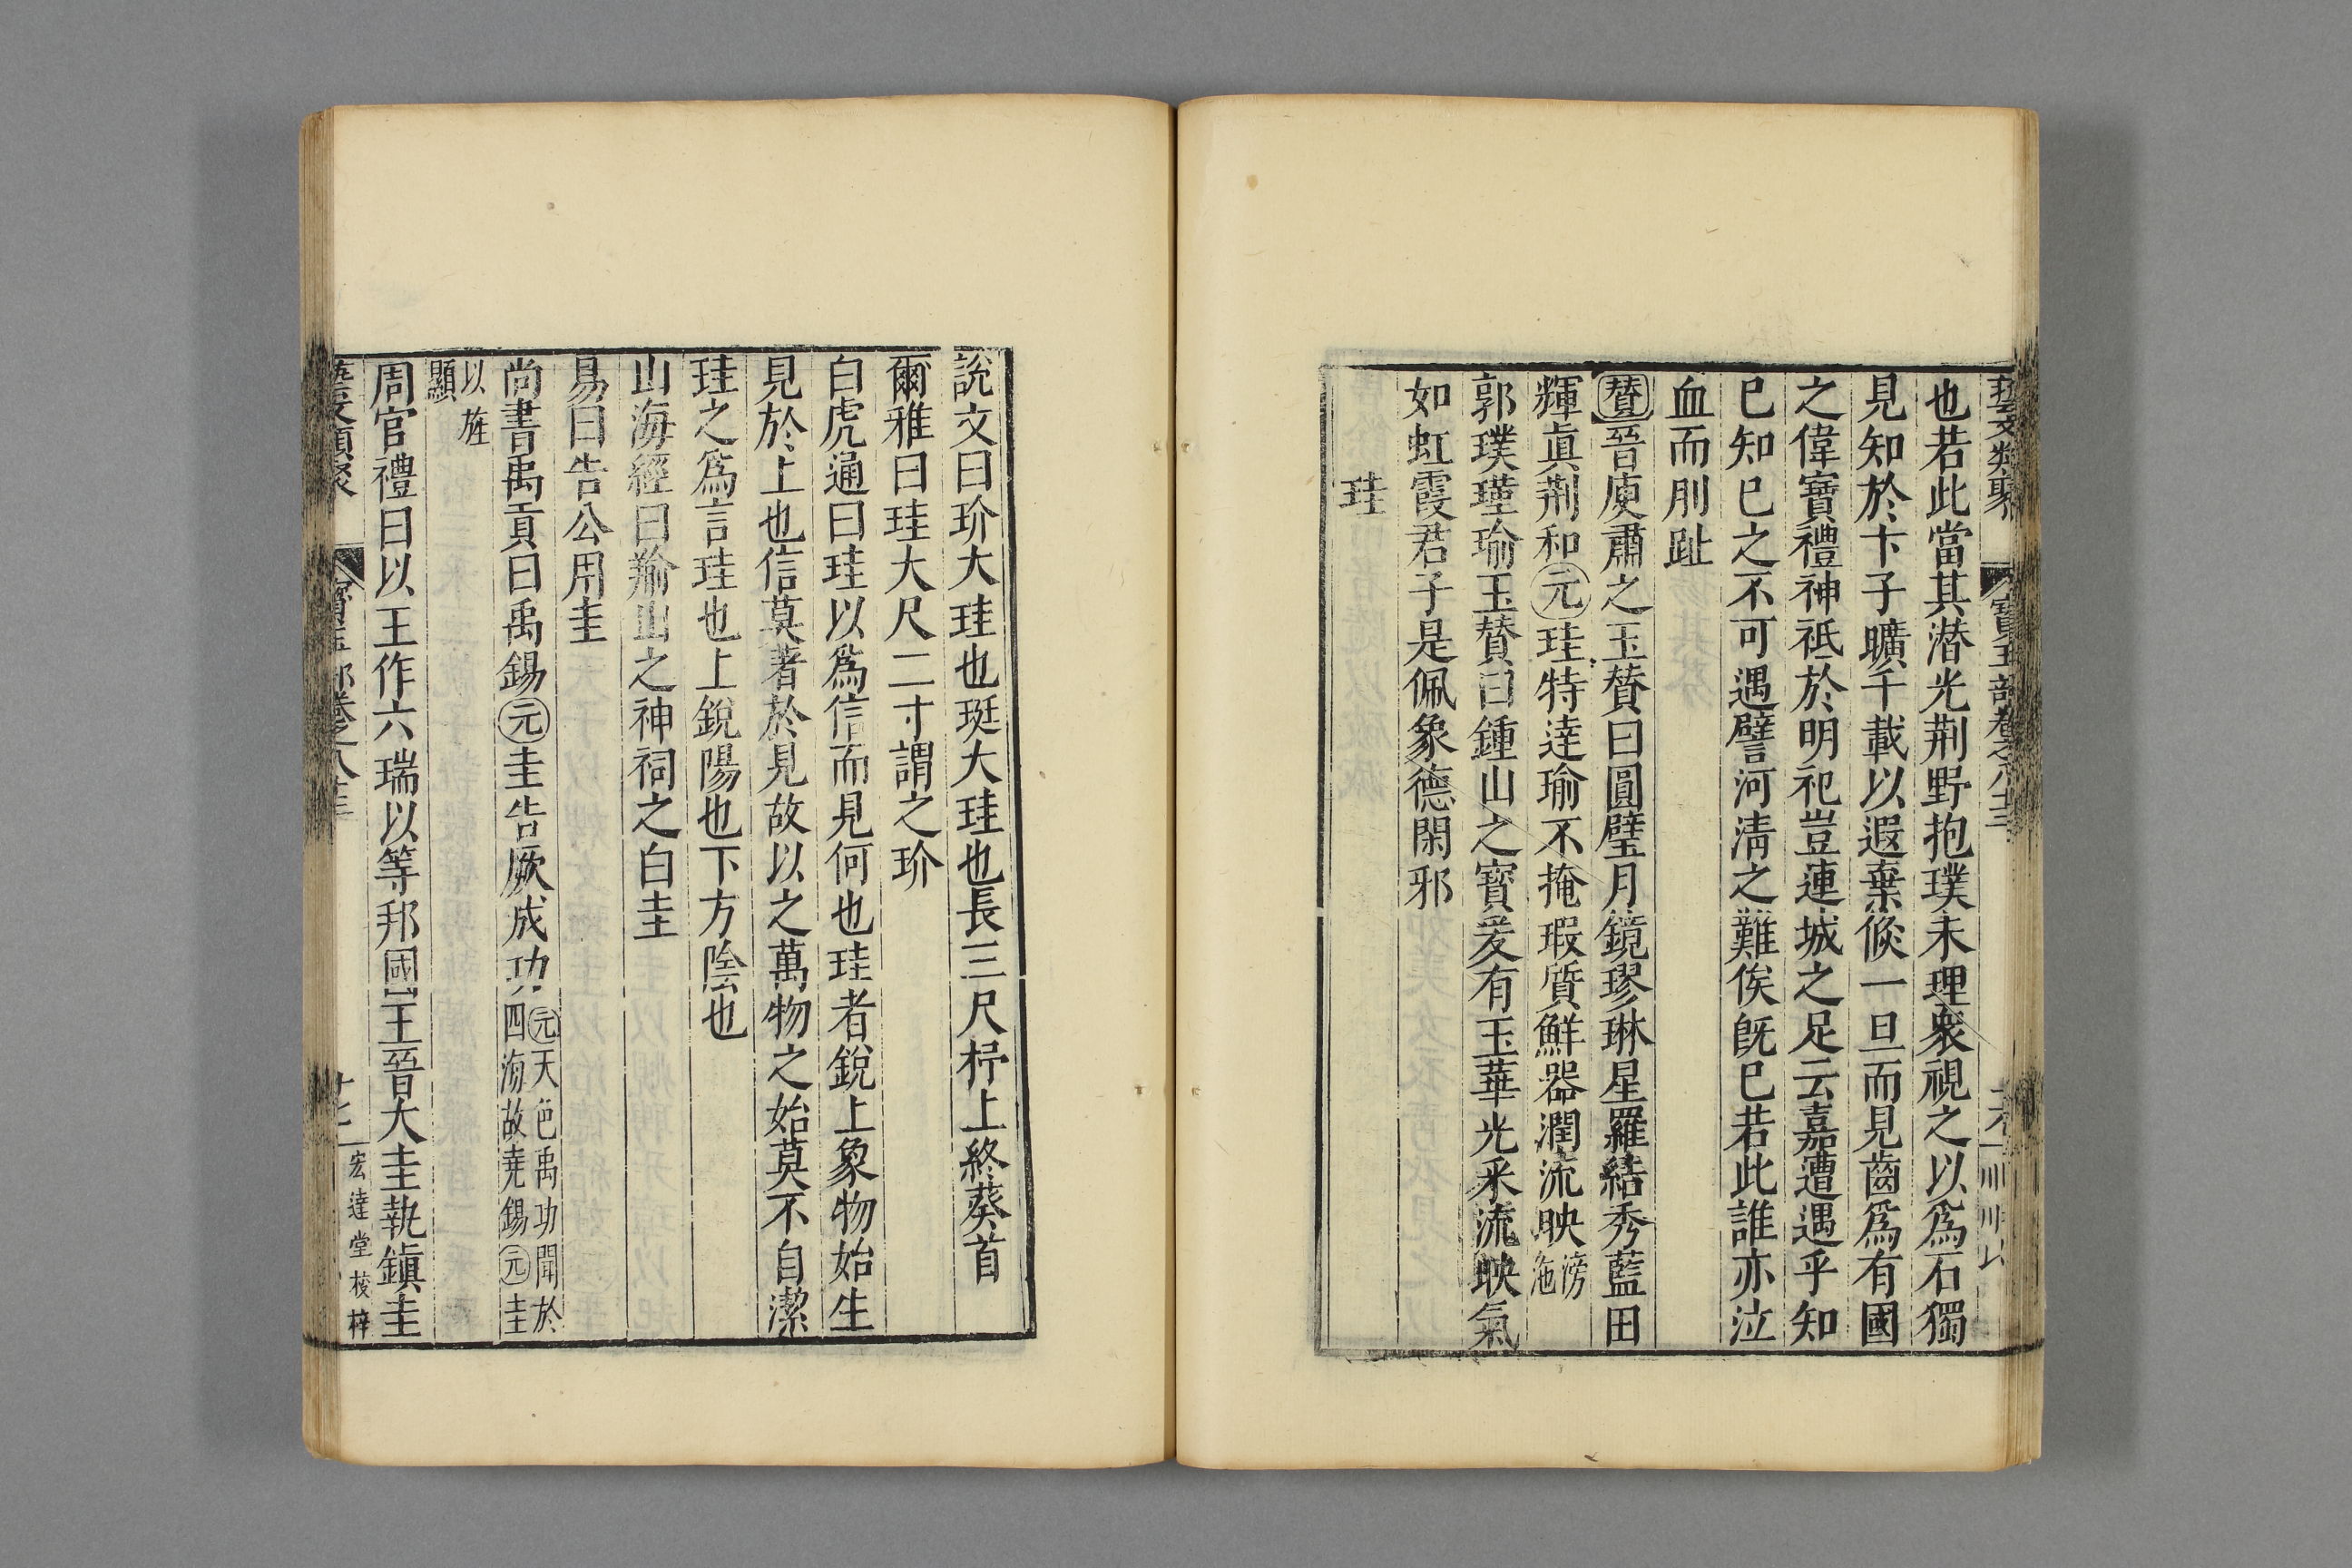 藝文類聚 寶玉部卷之八十三
也若此當其潜光荆野抱璞未理衆視之以爲石獨
見知於卞子曠千載以遐棄倐一旦而見齒爲有國
之偉寶禮神祗於明祀豈連城之足云嘉遭遇乎知
巳知巳之不可遇譬河清之難俟旣巳若此誰亦泣
血而刖趾
贊晉庾肅之玉贊曰圓璧月鏡璆琳星羅結秀藍田
輝眞荆和元珪特達瑜不掩瑕質鮮器潤流映滂沲
郭璞瑾瑜玉贊曰鍾山之寳爰有玉華光采流映氣
如虹霞君子是佩象德閑邪
珪
說文曰玠大珪也珽大珪也長三尺杼上終葵首
爾雅曰珪大尺二寸謂之玠
白虎通曰珪以爲信而見何也珪者銳上象物始生
見於上也信莫著於見故以之萬物之始莫不自潔
珪之爲言珪也上銳陽也下方陰也
山海經曰羭山之神祠之白圭
易曰告公用圭
尚書禹貢曰禹錫元圭告厥成功元天色禹功聞於四海故堯錫元圭
以旌顯
周官禮曰以王作六瑞以等邦國王晉大圭執鎭圭
藝文類聚 寶玉部卷之八十三 十七 宏達堂校梓